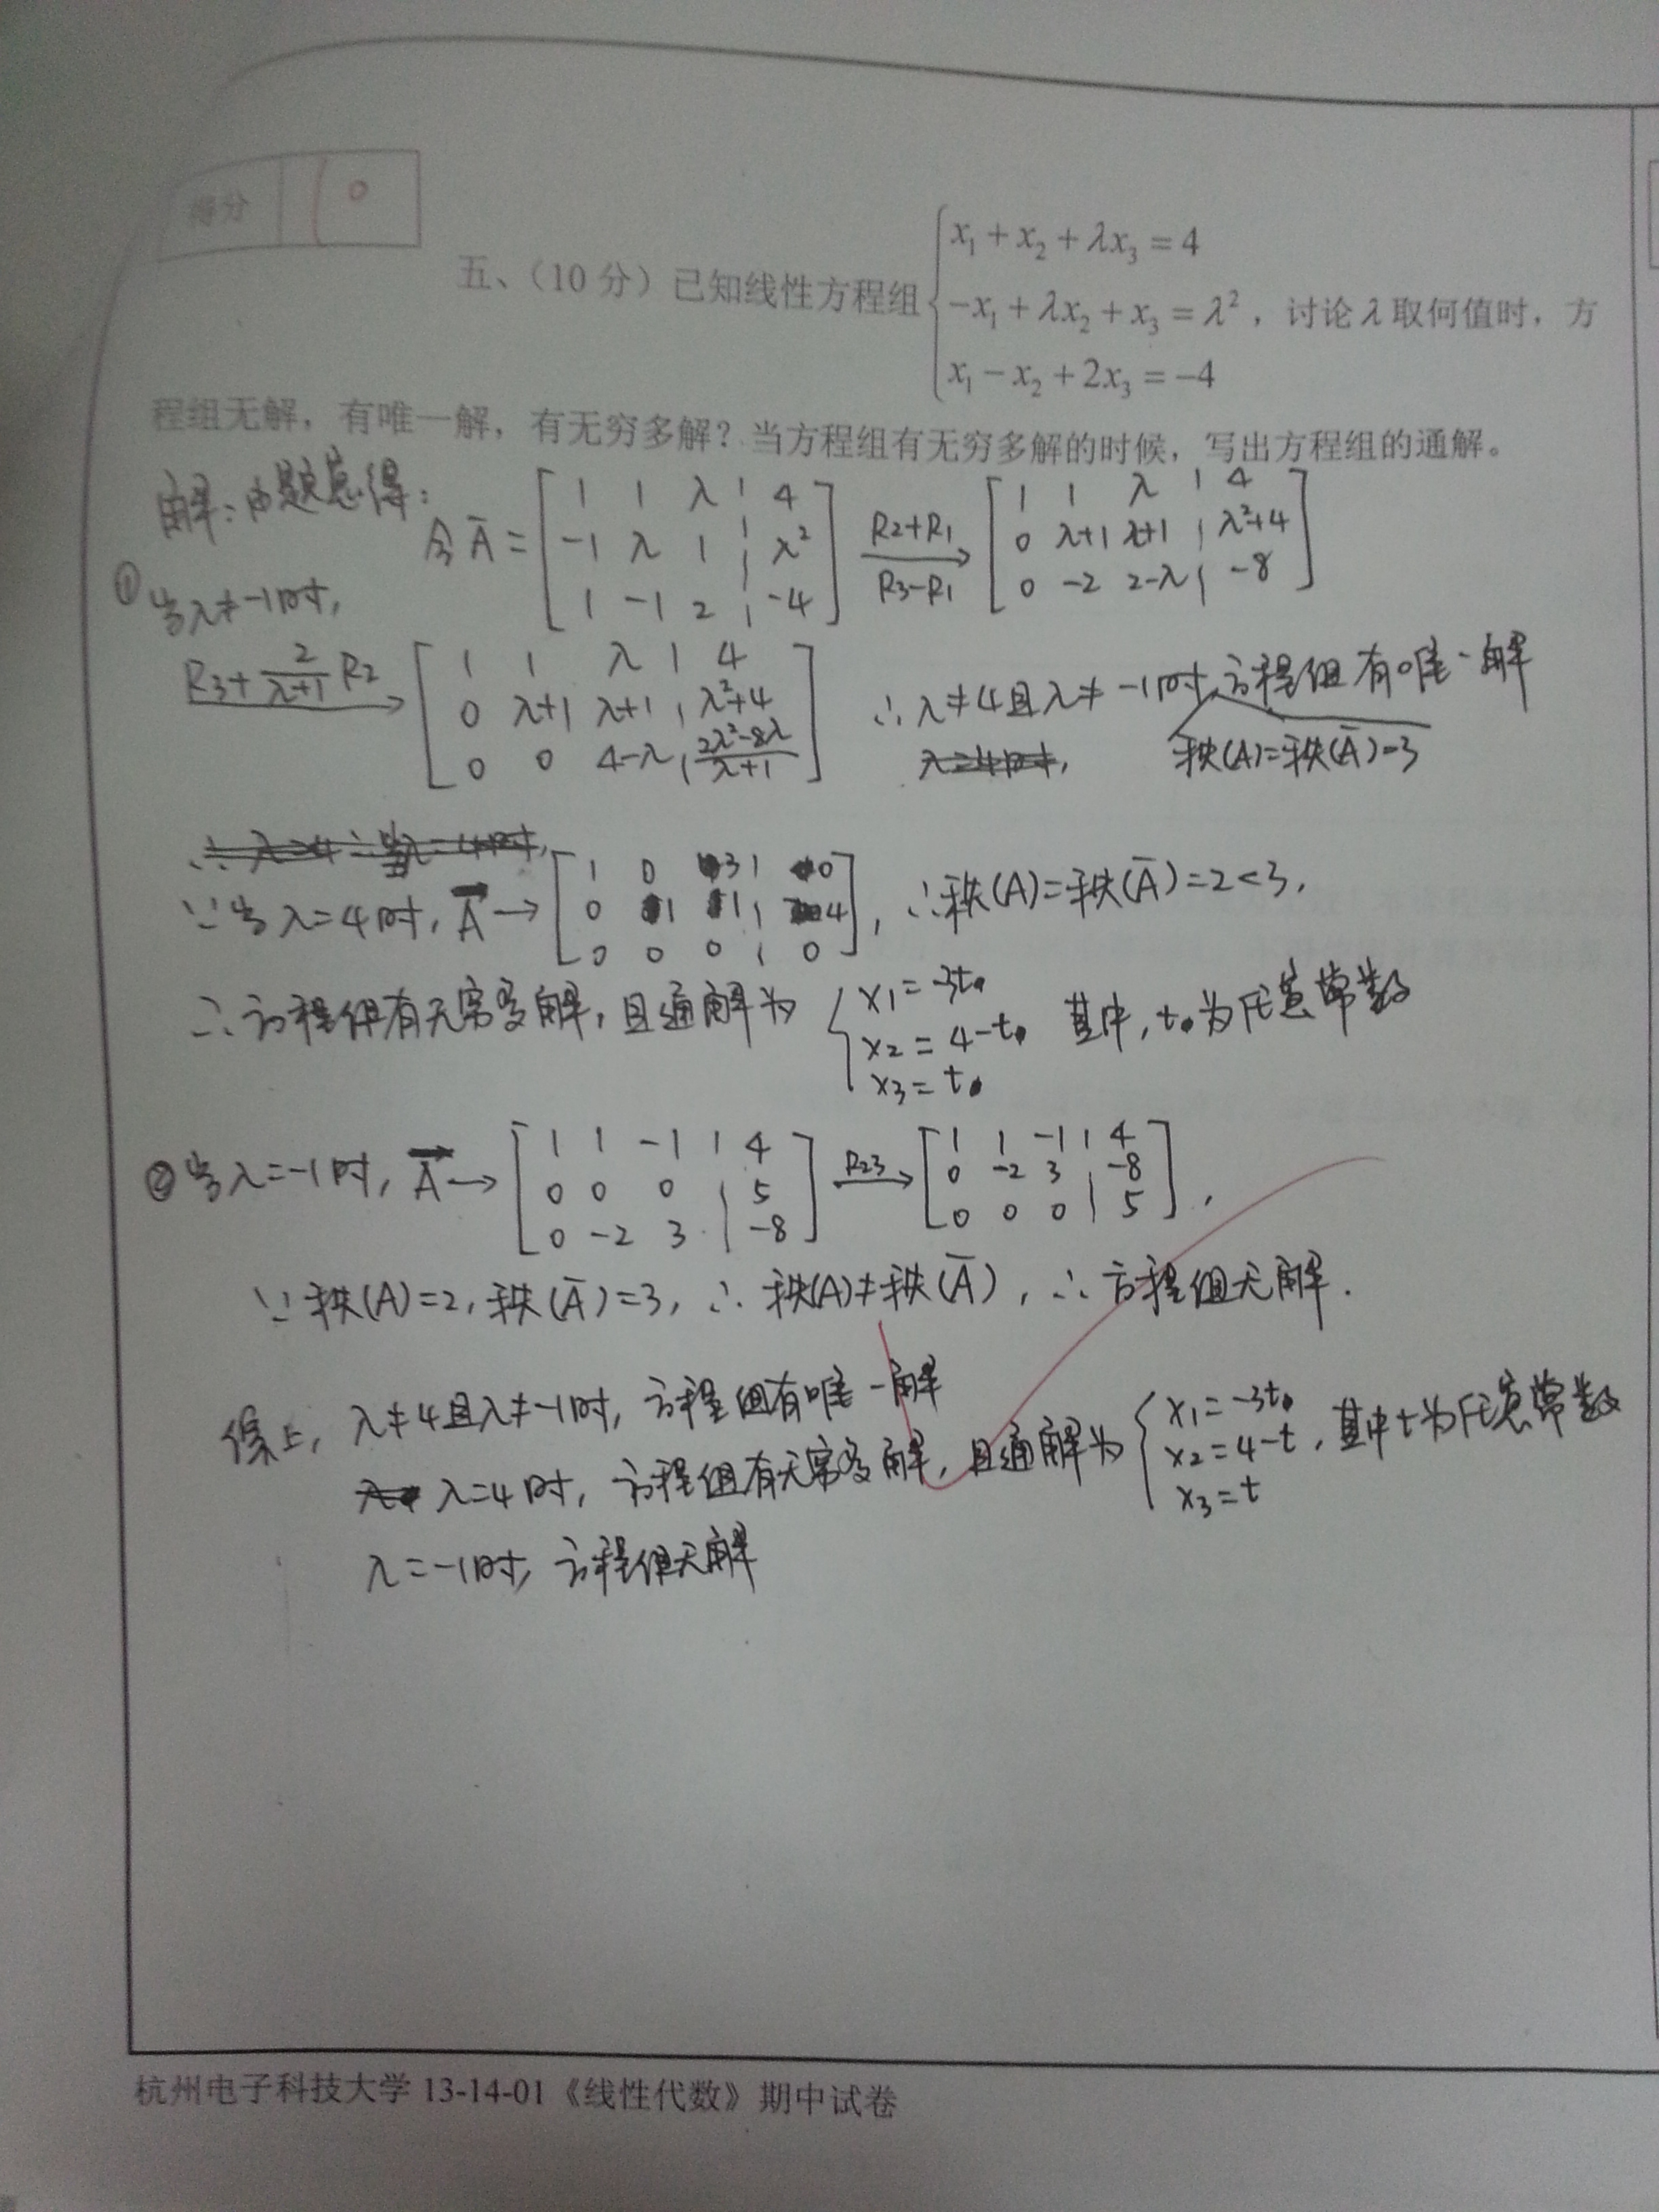 得分 10
五、（10 分）已知线性方程组 { x₁ + x₂ + λx₃ = 4
-x₁ + λx₂ + x₃ = λ² ，讨论 λ 取何值时，方
x₁ - x₂ + 2x₃ = -4
程组无解，有唯一解，有无穷多解？当方程组有无穷多解的时候，写出方程组的通解。
解：由题意得：
令 Ā = [ 1 1 λ | 4 ; -1 λ 1 | λ² ; 1 -1 2 | -4 ] R2+R1 R3-R1 → [ 1 1 λ | 4 ; 0 λ+1 λ+1 | λ²+4 ; 0 -2 2-λ | -8 ]
① 当λ≠-1时,
R3+2/(λ+1) R2 → [ 1 1 λ | 4 ; 0 λ+1 λ+1 | λ²+4 ; 0 0 4-λ | (2λ²-8λ)/(λ+1) ] ∴ λ≠4且λ≠-1时,方程组有唯一解
秩(A)=秩(Ā)=3
∵当λ=4时, Ā → [ 1 0 3 | 0 ; 0 1 1 | 4 ; 0 0 0 | 0 ], ∴秩(A)=秩(Ā)=2<3,
∴方程组有无穷多解, 且通解为 { x1=-3t
x2=4-t 其中,t为任意常数
x3=t
② 当λ=-1时, Ā → [ 1 1 -1 | 4 ; 0 0 0 | 5 ; 0 -2 3 | -8 ] R23 → [ 1 1 -1 | 4 ; 0 -2 3 | -8 ; 0 0 0 | 5 ],
∵秩(A)=2, 秩(Ā)=3, ∴ 秩(A)≠秩(Ā), ∴方程组无解.
综上, λ≠4且λ≠-1时, 方程组有唯一解
λ=4时, 方程组有无穷多解, 且通解为 { x1=-3t
x2=4-t, 其中t为任意常数
x3=t
λ=-1时, 方程组无解
杭州电子科技大学 13-14-01《线性代数》期中试卷